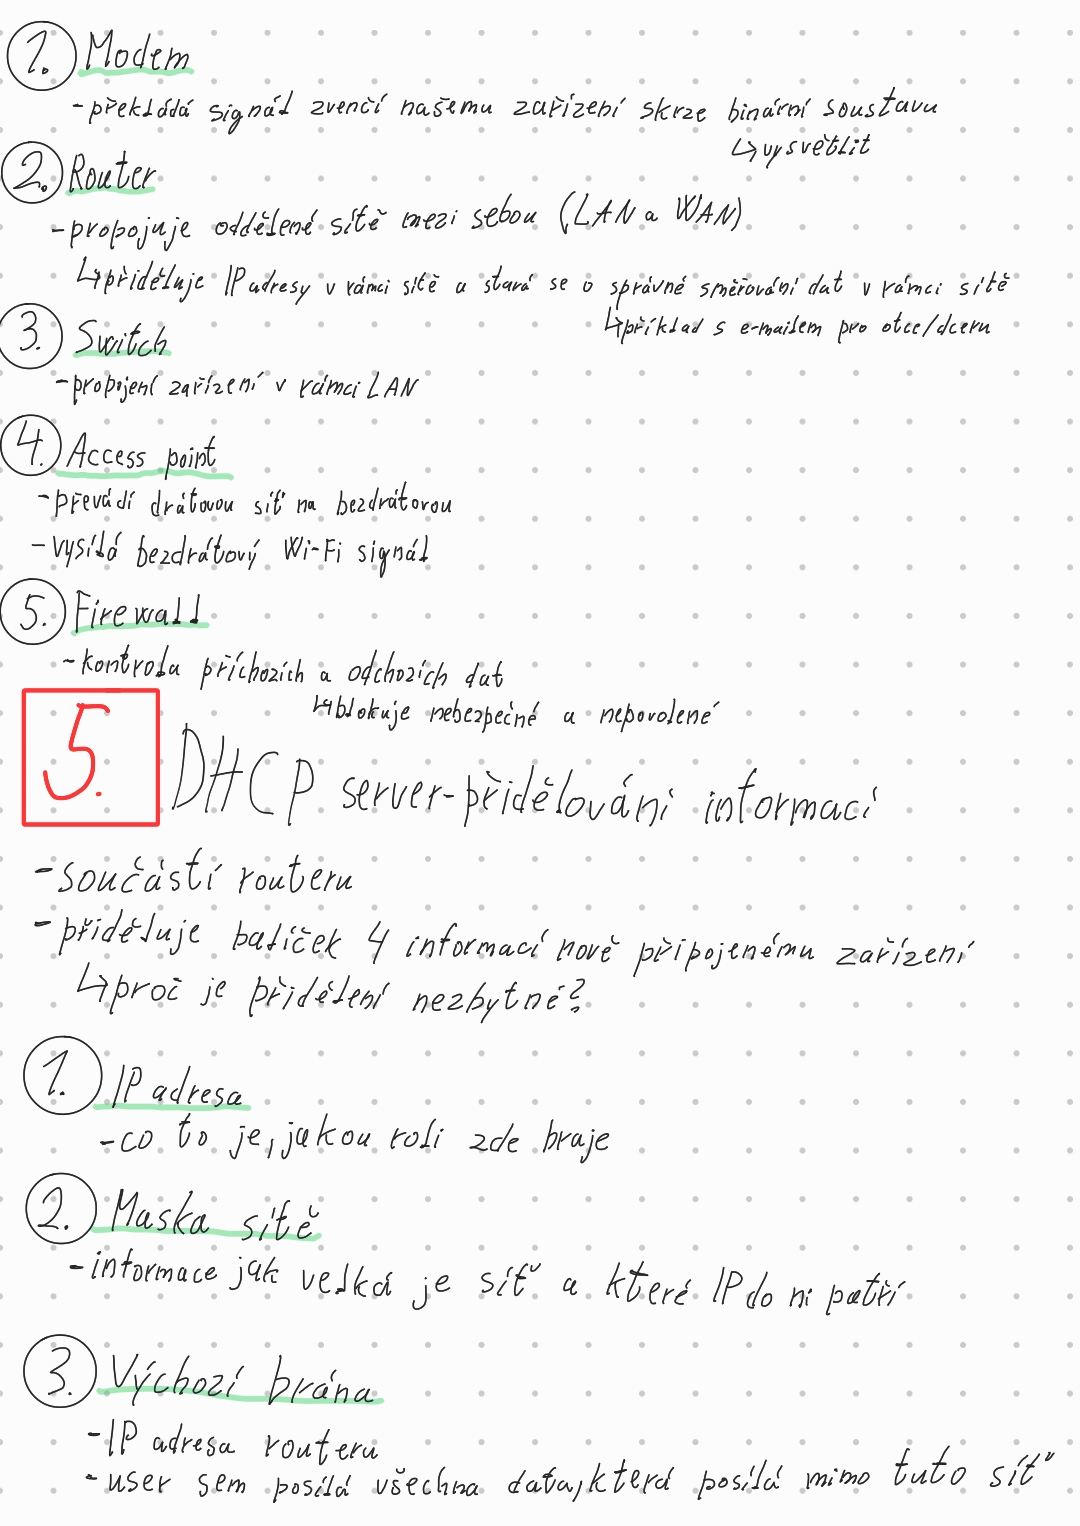 1. Modem
- překládá signál zvenčí našemu zařízení skrze binární soustavu
↳ vysvětlit
2. Router
- propojuje oddělené sítě mezi sebou (LAN a WAN)
↳ přiděluje IP adresy v rámci sítě a stará se o správné směřování dat v rámci sítě
↳ příklad s e-mailem pro otce/dceru
3. Switch
- propojení zařízení v rámci LAN
4. Access point
- převádí drátovou síť na bezdrátovou
- vysílá bezdrátový Wi-Fi signál
5. Firewall
- kontrola příchozích a odchozích dat
↳ blokuje nebezpečné a nepovolené
5. DHCP server - přidělování informací
- součástí routeru
- přiděluje balíček 4 informací nově připojenému zařízení
↳ proč je přidělení nezbytné?
1. IP adresa
- co to je, jakou roli zde hraje
2. Maska sítě
- informace jak velká je síť a které IP do ní patří
3. Výchozí brána
- IP adresa routeru
- user sem posílá všechna data, která posílá mimo tuto síť